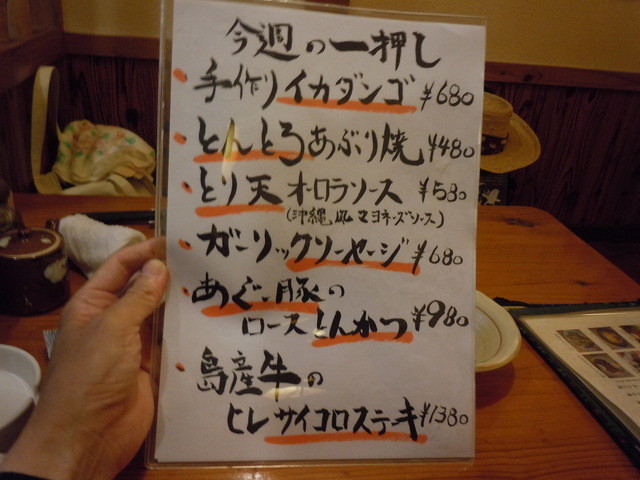 今週の一押し
手作りイカダンゴ ¥680
とんとろあぶり焼 ¥480
とり天 オーロラソース ¥580
(沖縄風マヨネーズソース)
ガーリックソーセージ ¥680
あぐー豚の
ロースとんかつ ¥980
島産牛の
ヒレサイコロステーキ ¥1380